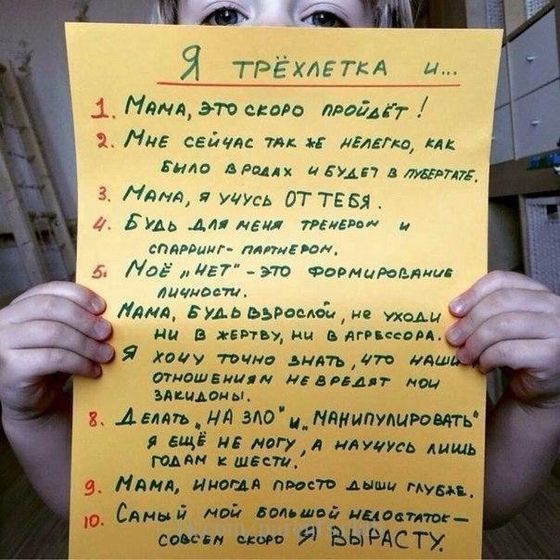 Я ТРЁХЛЕТКА И...
1. МАМА, ЭТО СКОРО ПРОЙДЁТ!
2. МНЕ СЕЙЧАС ТАК ЖЕ НЕЛЕГКО, КАК
БЫЛО В РОДАХ И БУДЕТ В ПУБЕРТАТЕ.
3. МАМА, Я УЧУСЬ ОТ ТЕБЯ.
4. БУДЬ ДЛЯ МЕНЯ ТРЕНЕРОМ И
СПАРРИНГ-ПАРТНЕРОМ.
5. МОЁ „НЕТ" - ЭТО ФОРМИРОВАНИЕ
ЛИЧНОСТИ.
МАМА, БУДЬ ВЗРОСЛОЙ, НЕ УХОДИ
НИ В ЖЕРТВУ, НИ В АГРЕССОРА.
Я ХОЧУ ТОЧНО ЗНАТЬ, ЧТО НАШИМ
ОТНОШЕНИЯМ НЕ ВРЕДЯТ МОИ
ЗАКИДОНЫ.
8. ДЕЛАТЬ „НА ЗЛО" И „МАНИПУЛИРОВАТЬ"
Я ЕЩЁ НЕ МОГУ, А НАУЧУСЬ ЛИШЬ
ГОДАМ К ШЕСТИ.
9. МАМА, ИНОГДА ПРОСТО ДЫШИ ГЛУБЖЕ.
10. САМЫЙ МОЙ БОЛЬШОЙ НЕДОСТАТОК —
СОВСЕМ СКОРО Я ВЫРАСТУ.